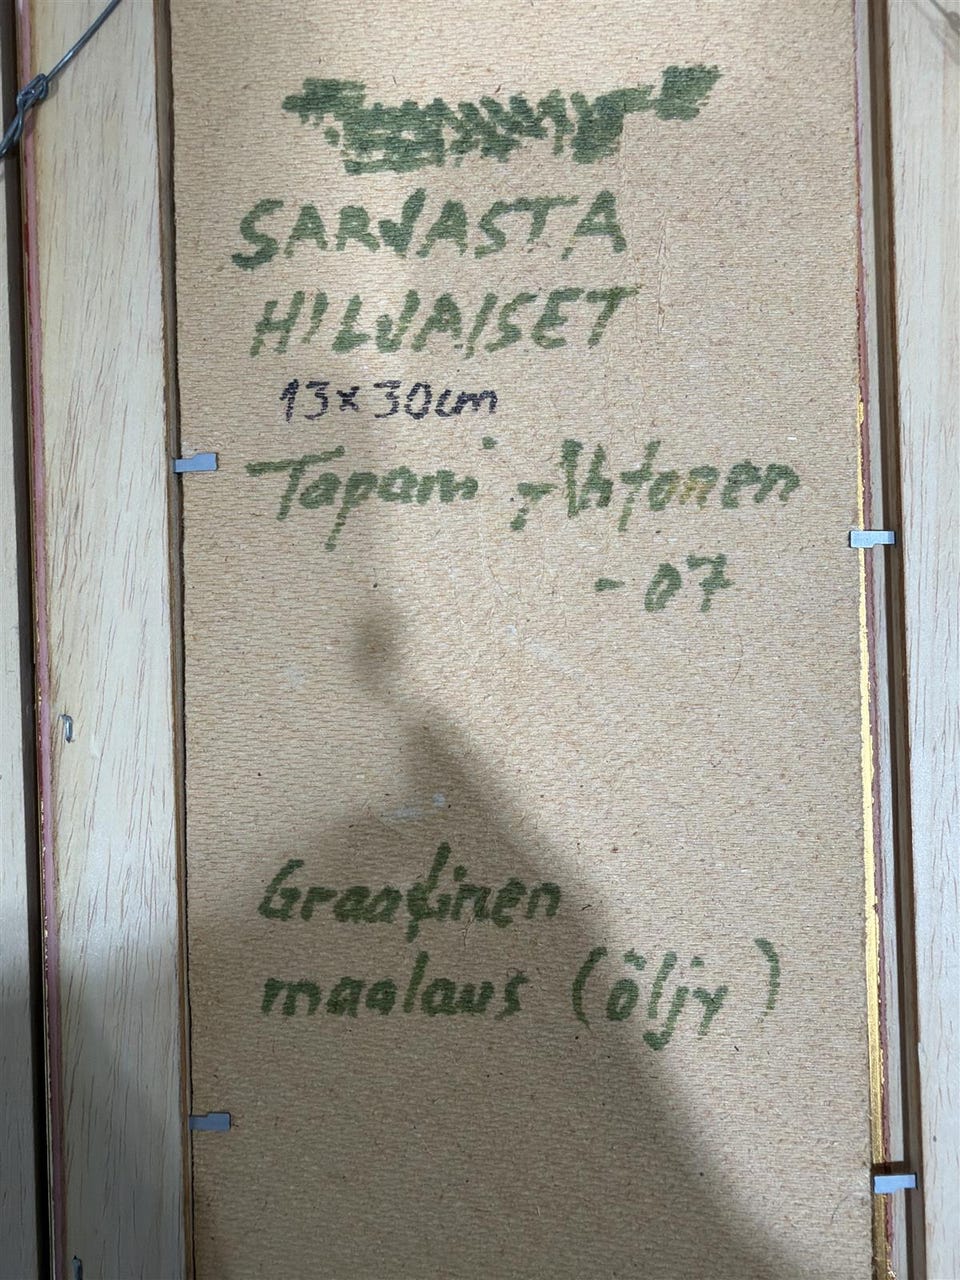 SARJASTA
HILJAISET
13x30cm
Tapani Ahtonen
-07
Graafinen
maalaus (öljy)